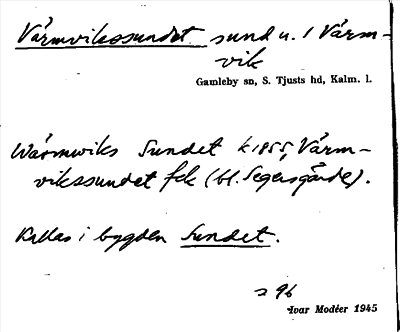 Värmvikssundet sund u. / Värm-
vik
Gamleby sn, S. Tjusts hd, Kalm. l.
Wärmwiks Sundet k 1855, Värm-
vikssundet fek (bl. Segersgärde).
Kallas i bygden Sundet.
s 96
Ivar Modéer 1945